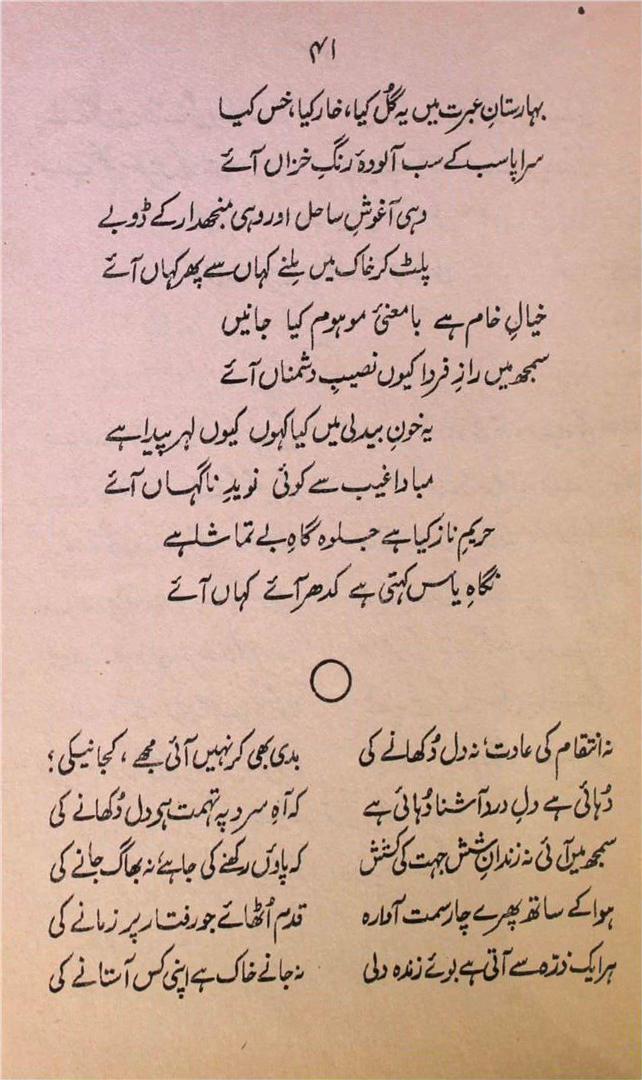 ۴۱
بہارستانِ عبرت میں یہ گُل کیا، خار کیا، خس کیا
سراپا سب کے سب آلودۂ رنگِ خزاں آئے
وہی آغوشِ ساحل اور وہی منجھدار کے ڈوبے
پلٹ کر خاک میں ملنے کہاں سے پھر کہاں آئے
خیالِ خام ہے بامعنیٔ موہوم کیا جانیں
سمجھ میں رازِ فردا کیوں نصیبِ دشمناں آئے
یہ خونِ بیدلی میں کیا کہوں کیوں لہر پیدا ہے
مبادا غیب سے کوئی نویدِ ناگہاں آئے
حریمِ ناز کیا ہے جلوہ گاہِ بے تماشا ہے
نگاہِ یاس کہتی ہے کدھر آئے کہاں آئے
نہ انتقام کی عادت، نہ دل دُکھانے کی بدی بھی کر نہیں آئی مجھے، کجا نیکی؟
دُہائی ہے دلِ درد آشنا دُہائی ہے کہ آہِ سرد پہ تہمت ہی دل دُکھانے کی
سمجھ میں آئی نہ زندانِ شش جہت کی کشش کہ پاؤں رکھنے کی جا ہے، نہ بھاگ جانے کی
ہوا کے ساتھ پھرے چار سمت آوارہ قدم اُٹھائے جو رفتار پر زمانے کی
ہر ایک ذرّہ سے آتی ہے بوئے زندہ دلی نہ جانے خاک ہے اپنی کس آستانے کی